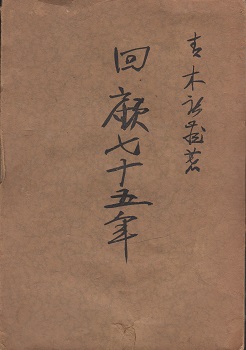 青木 蔵著
回顧七十五年